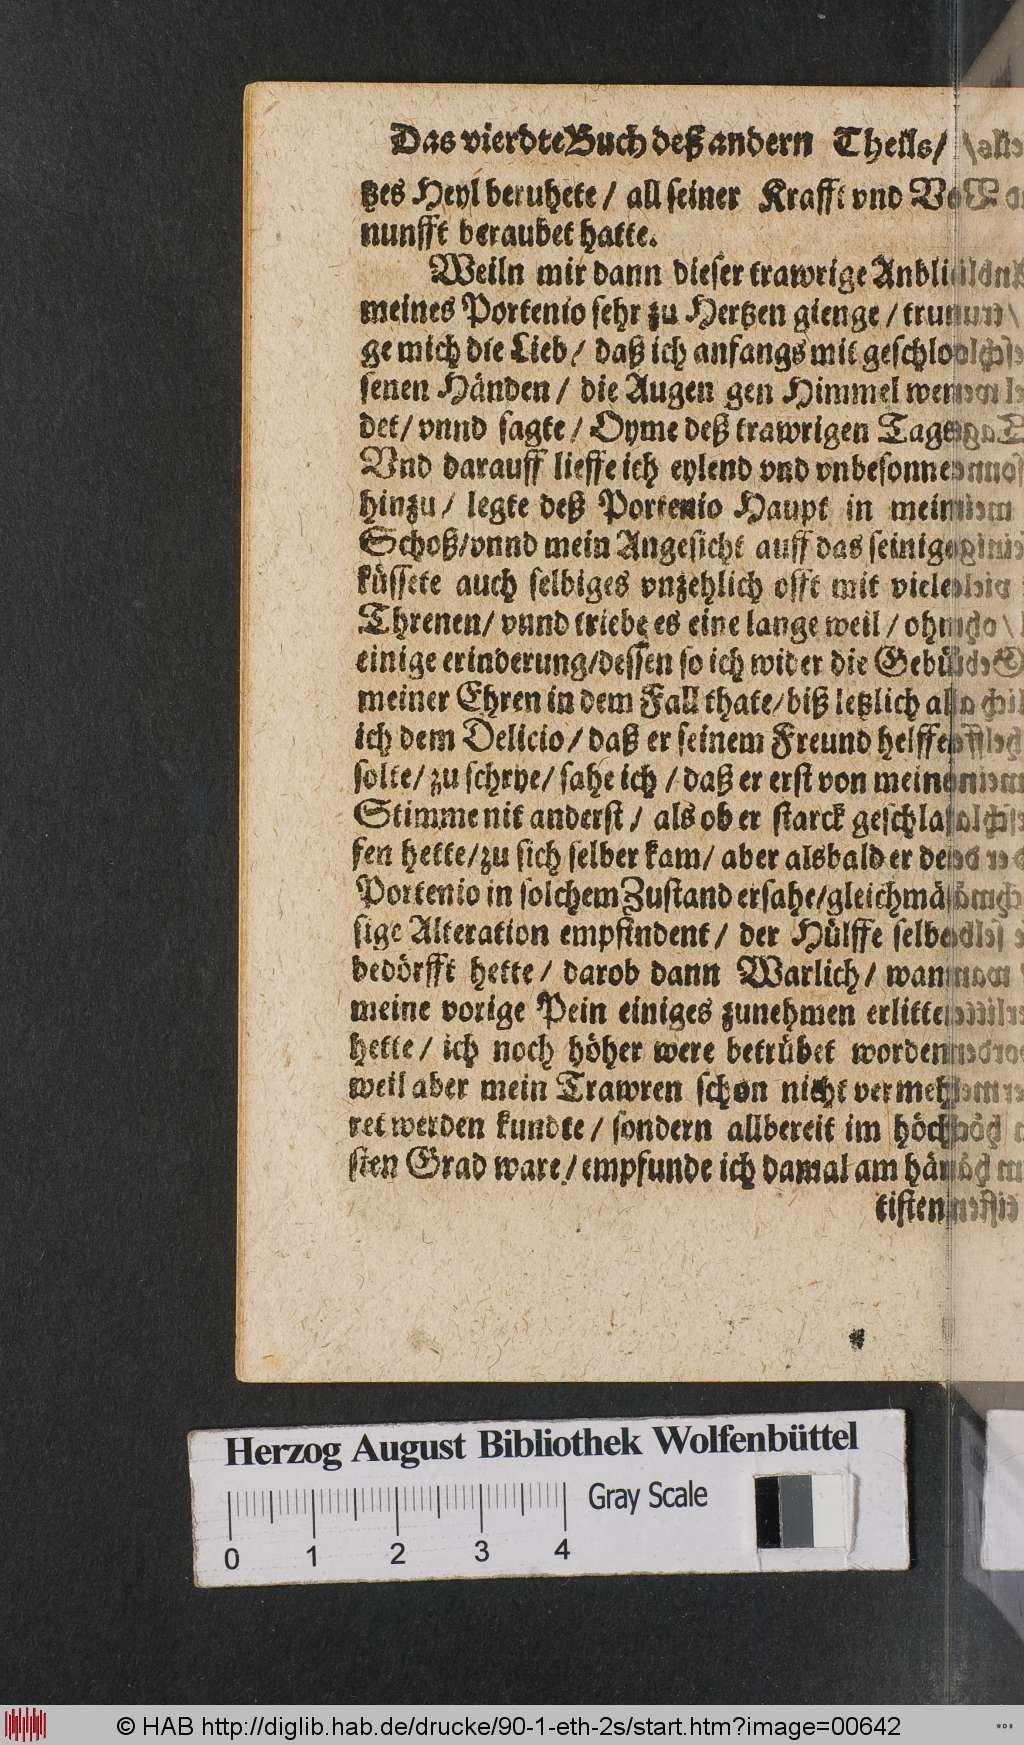 Das vierdte Buch deß andern Theils/
tzes Heyl beruhete / all seiner Krafft vnd Ver
nunfft beraubet hatte.
Weiln mir dann dieser trawrige Anblick
meines Portenio sehr zu Hertzen gienge / trunn
ge mich die Lieb / daß ich anfangs mit geschlos
senen Händen / die Augen gen Himmel wen
det / vnnd sagte / Oyme deß trawrigen Tags
Vnd darauff lieffe ich eylend vnd vnbesonnen
hinzu / legte deß Portenio Haupt in mein
Schoß/vnnd mein Angesicht auff das seinige
küssete auch selbiges vnzehlich offt mit vielen
Threnen/ vnnd triebe es eine lange weil / ohn
einige erinderung/dessen so ich wider die Gebür
meiner Ehren in dem Fall thate/biß letzlich als
ich dem Delicio / daß er seinem Freund helffen
solte/ zu schrye/ sahe ich / daß er erst von meiner
Stimme nit anderst / als ob er starck geschlaf
fen hette/zu sich selber kam/ aber alsbald er den
Portenio in solchem Zustand ersahe/gleichmäs
sige Alteration empfindent / der Hülffe selber
bedörfft hette / darob dann Warlich / wann
meine vorige Pein einiges zunehmen erlitten
hette / ich noch höher were betrübet worden
weil aber mein Trawren schon nicht vermeh
ret werden kundte / sondern allbereit im höch
sten Grad ware / empfunde ich damal am häff
tisten
Herzog August Bibliothek Wolfenbüttel
Gray Scale
0 1 2 3 4
© HAB http://diglib.hab.de/drucke/90-1-eth-2s/start.htm?image=00642